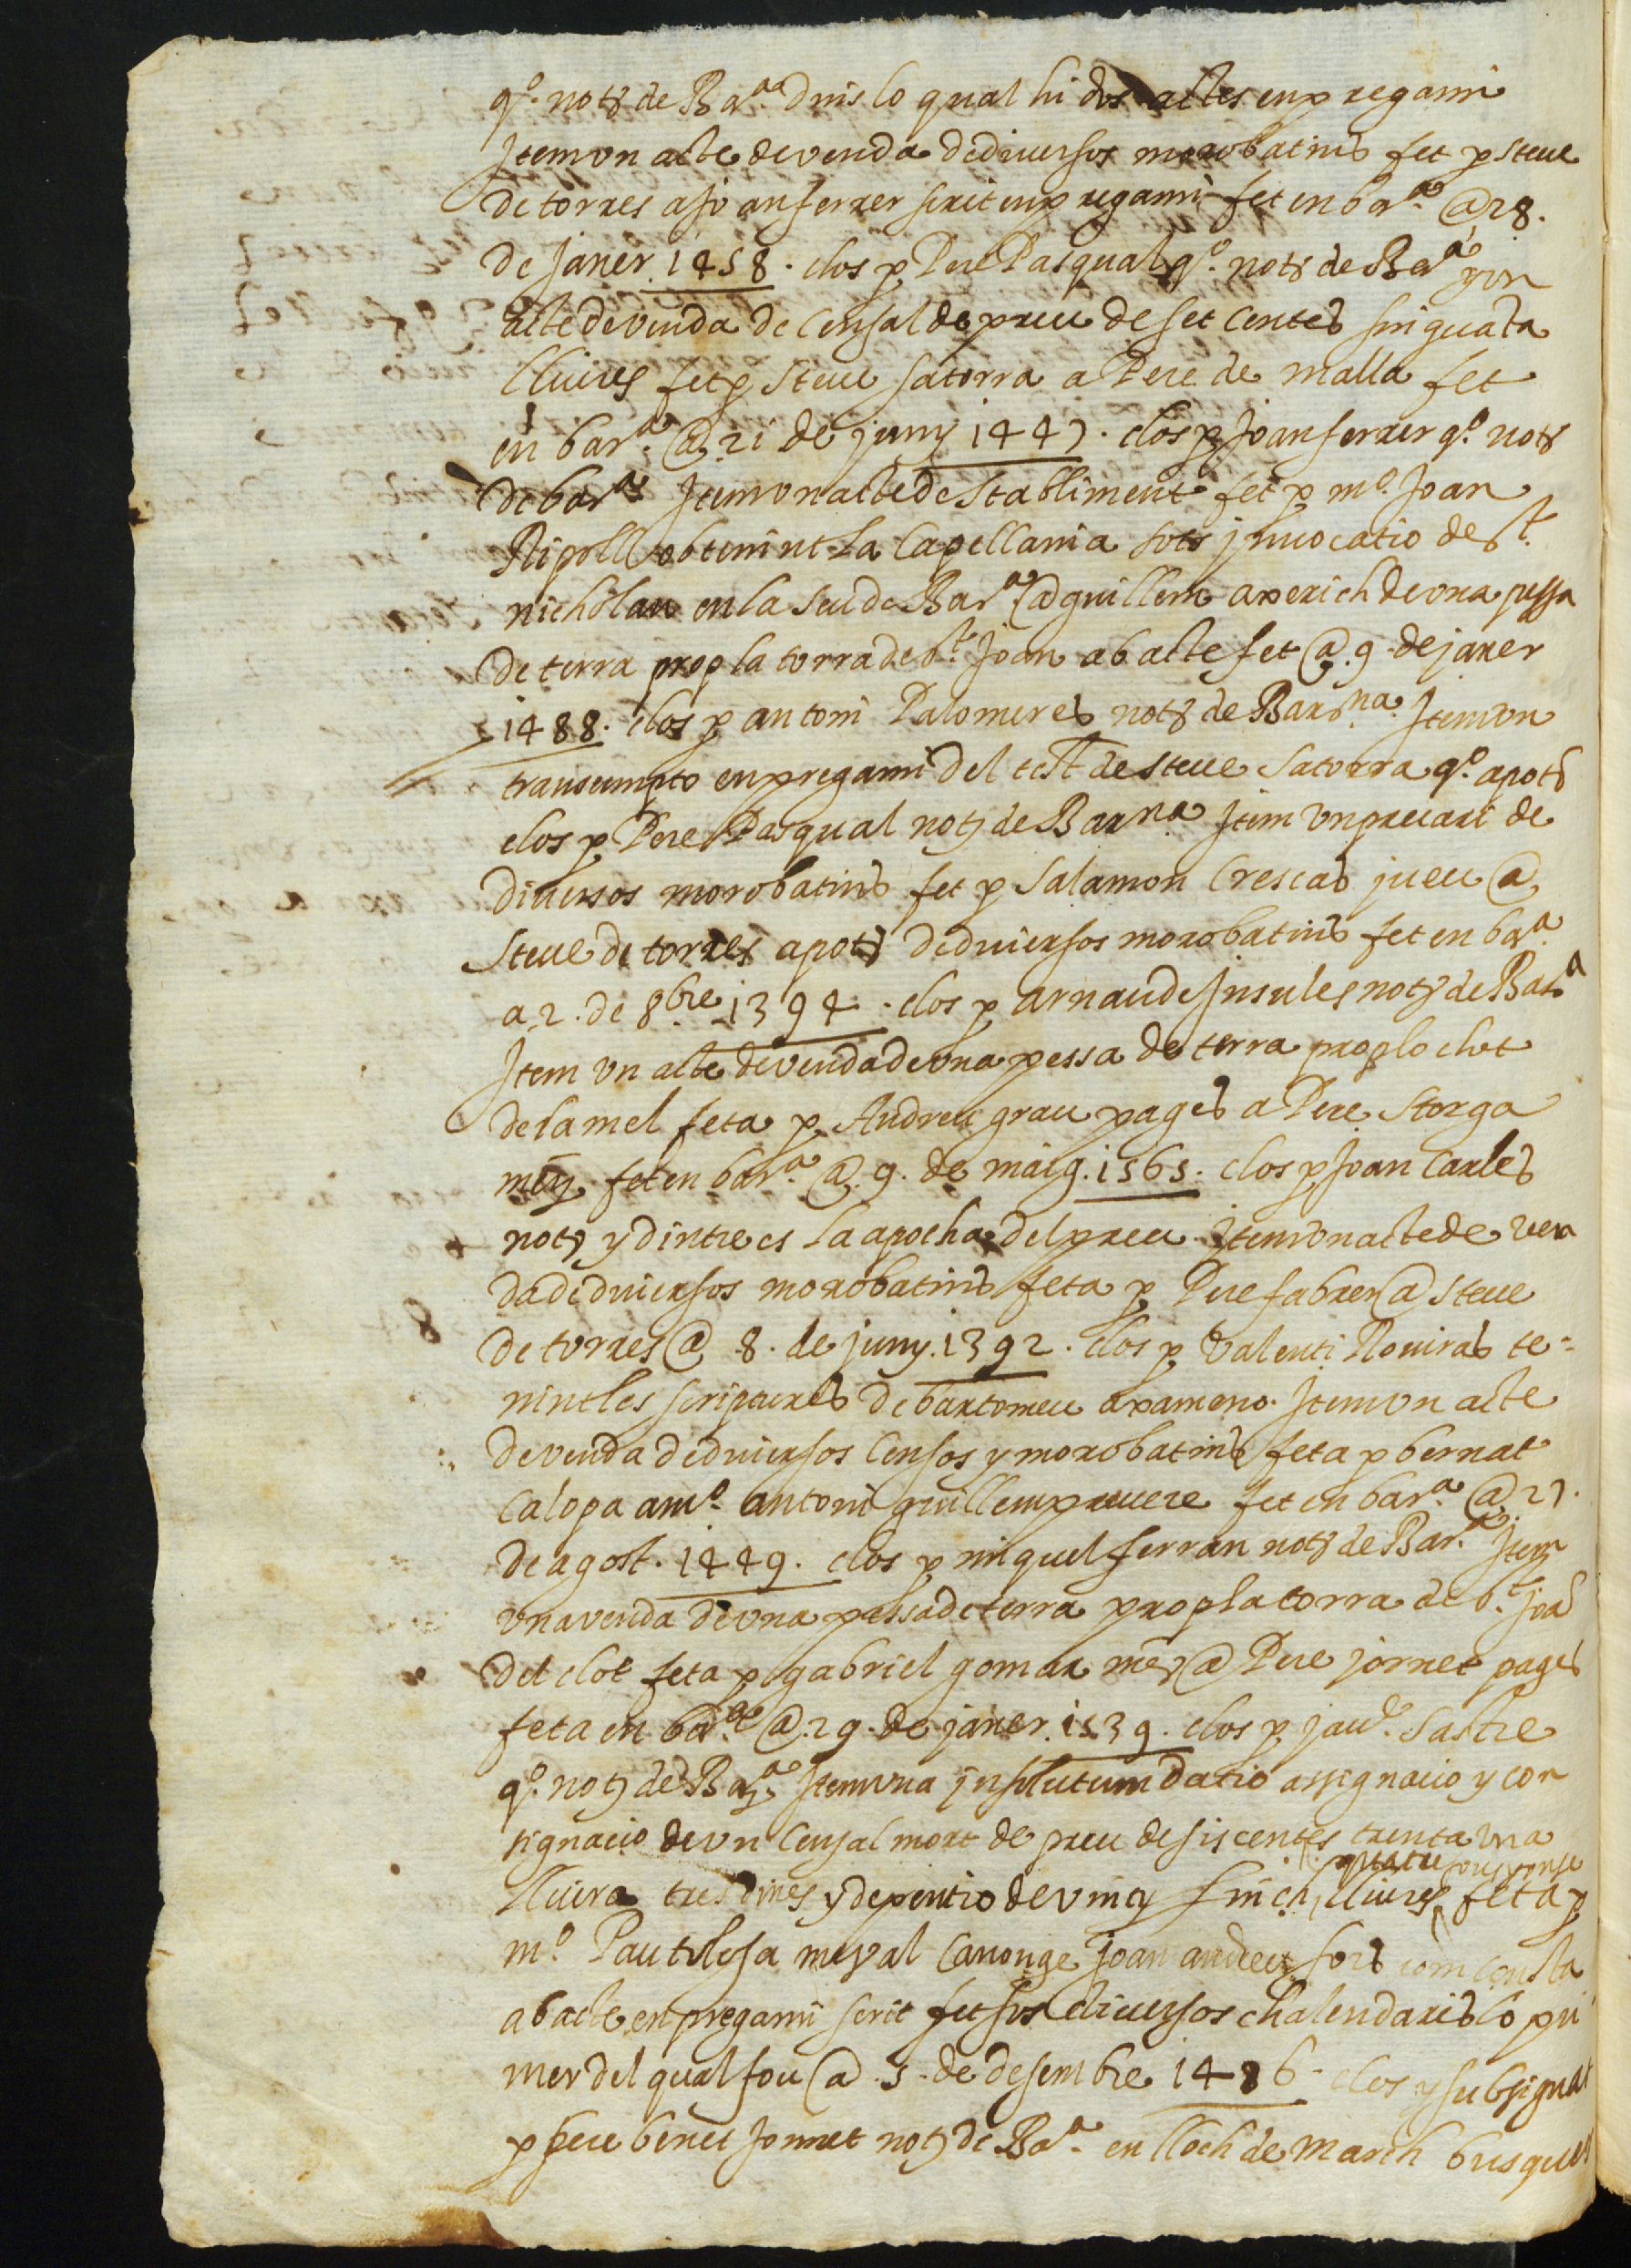 qº. notʳ de Barª. dins lo qual hi dos actes en pregami
Item vn acte de venda de diuersos morobatins fet p steue
de torres a joan ferrer scrit en pregami fet en barª. @ 28.
de janer 1458. clos p Pere Pasqual qº. notʳ de Barª y vn
acte de venda de censal de preu de set centes sinquata
lliures fet p Steue satorra a Pere de malla fet
en barª. @ 21 de juny 1447. clos p Joan ferrer qº. notʳ
de barª Item vn acte de stabliment fet p mº. Joan
Ripoll obtenint la Capellania sots jnuocatio de Sᵗ.
nicholau en la seu de Barª. @ guillem axerich de vna pessa
de terra prop la torra de Sᵗ. Joan ab acte fet @ 9. de janer
1488. clos p antoni Palomeres notʳ de Barⁿᵃ. Item vn
transumpto en pregami del testᵗ de steue Satorra qº. apotʳ
clos p Pere Pasqual notʳ de Barⁿᵃ Item vn precari de
diuersos morobatins fet p Salamon Crescas jueu @
Steue de torres apotʳ de diuersos morobatins fet en barª.
a 2. de 8bre 1394. clos p arnau des Jnsules notʳ de Barª
Item vn acte de venda de vna pessa de terra prop lo clot
de la mel feta p Andreu grau pages a Pere Storga
mer fet en barª. @ 9. de maig. 1565. clos p Joan Carles
notʳ y dintre es la apocha del preu. Item vn acte de ven
da de diuersos morobatins feta p Pere fabrer @ steue
de torres @ 8. de juny. 1392. clos p Valenti Rouiras te=
nint les scriptures de bartomeu axameno. Item vn acte
de venda de diuersos Censos y morobatins feta p bernat
Calopa a mº. antoni guillem preuere fet en barª. @ 27.
de agost. 1449. clos p miquel ferran notʳ de Barª. Item
vna venda de vna pessa de terra prop la torra de Sᵗ. joã
del clot feta p gabriel gomar mer @ Pere jornet pages
feta en barª @ 29. de janer. 1539. clos p jauᵉ. Sastre
qº. notʳ de Barª. Item vna jnsolutumdatio assignacio y con
signacio de vn Censal mort de preu de siscentes trenta vna
quatre sous y onse
lliura tres dines y de pentio de vint y sinch lliures feta p
mº. Pau meyal Canonge Joan andreu sors com consta
ab acte en pregami scrit fet sos diuersos chalendaris lo pri
mer del qual fou @ 5. de desembre 1486. clos y subsignat
p pere benet Jonnet notʳ de Barª. en lloch de March busquet